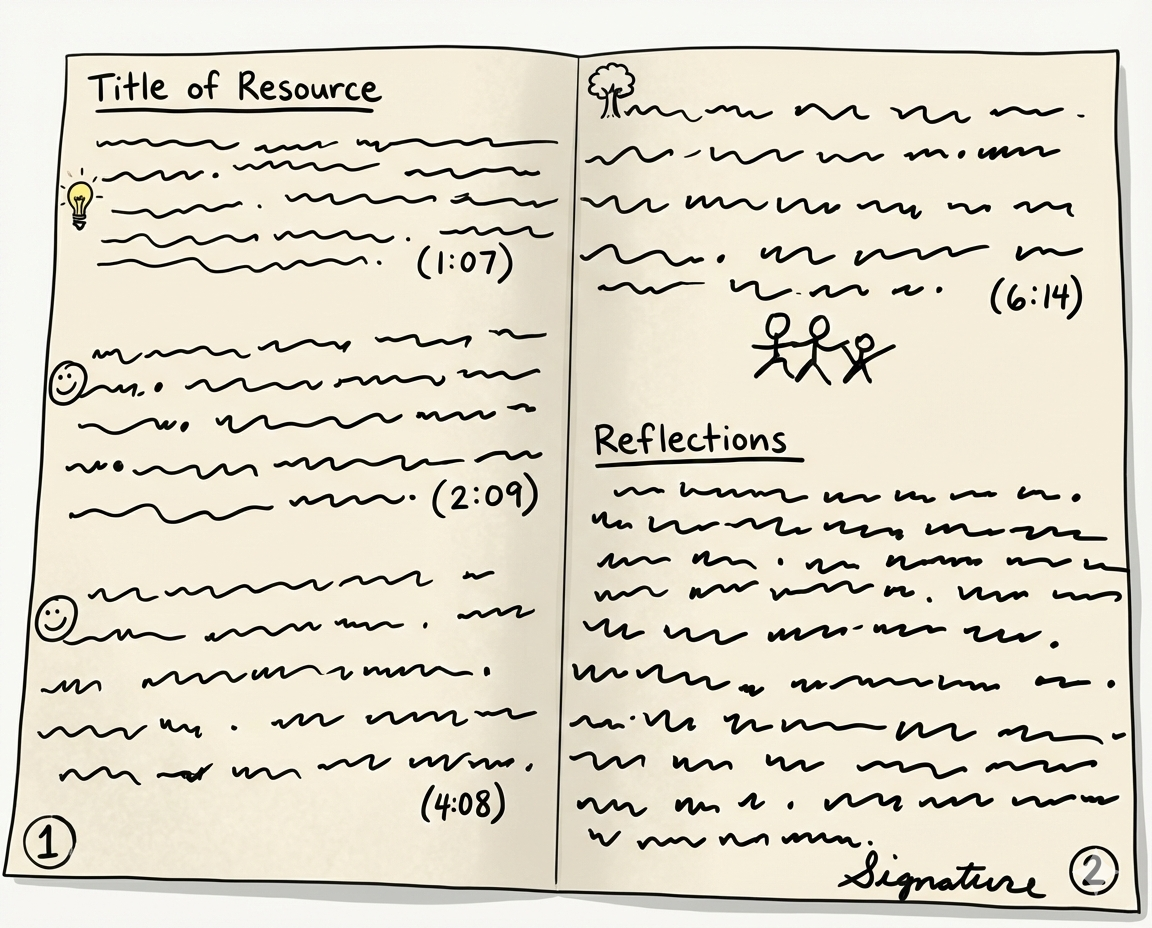 Title of Resource
(1:07)
(2:09)
(4:08)
1
(6:14)
Reflections
Signature
2